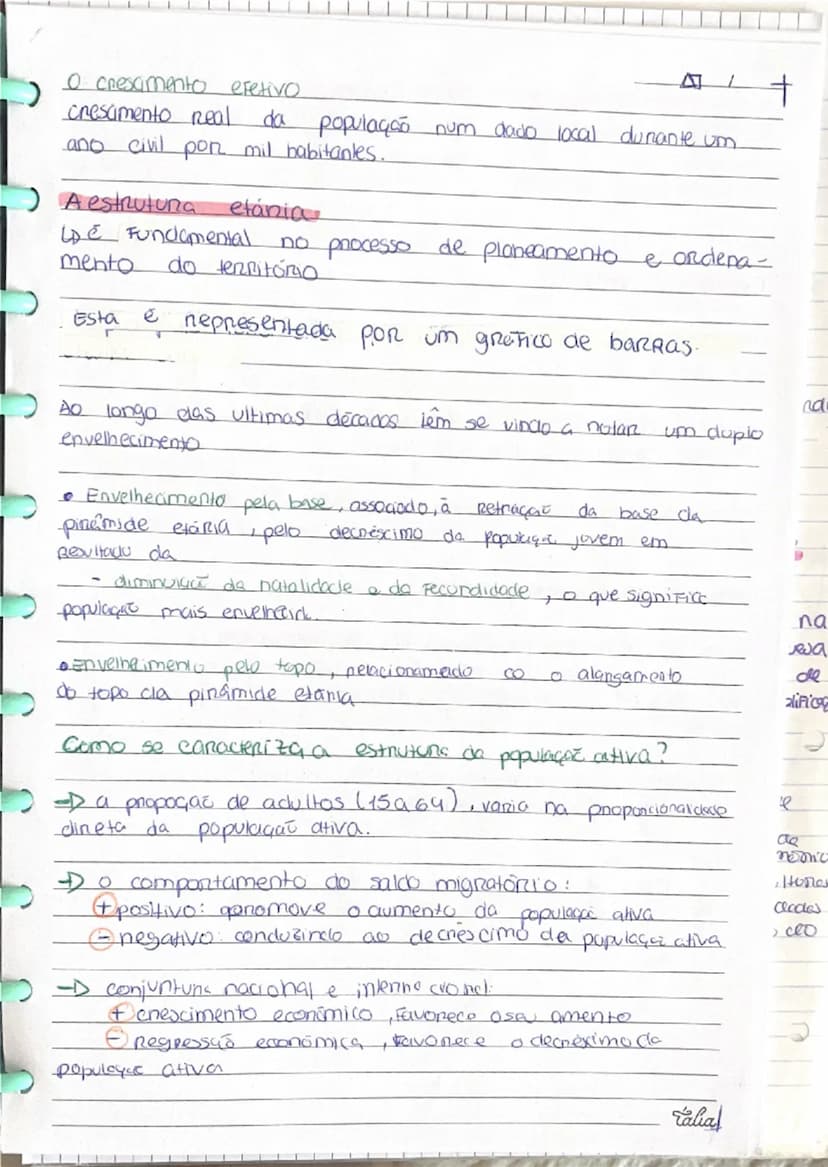 O crescimento efetivo
crescimento real da população num dado local durante um
ano civil por mil habitantes.
A estrutura etária
↳ É Fundamental no processo de planeamento e ordena-
mento do território
Esta é representada por um gráfico de barras.
Ao longo das ultimas décadas têm se vindo a notar um duplo
envelhecimento
• Envelhecimento pela base, associado, à retração da base da
pirâmide etária, pelo decréscimo da população jovem em
resultado da
- diminuição da natalidade e da fecundidade, o que significa
população mais envelhecida.
• Envelhecimento pelo topo, relacionamedo co o alargamento
do topo da pirâmide etária
Como se caracteriza a estrutura da população ativa?
→ a propoção de adultos (15 a 64), varia na proporcionalidade
direta da população ativa.
→ o comportamento do saldo migratório:
+ positivo: promove o aumento da população ativa
- negativo: conduzindo ao decréscimo da população ativa
→ conjuntura nacional e internacional:
+ crescimento económico, favorece o seu amento
- Regressão económica, favorece o decréscimo da
população ativa
Talia
na
de